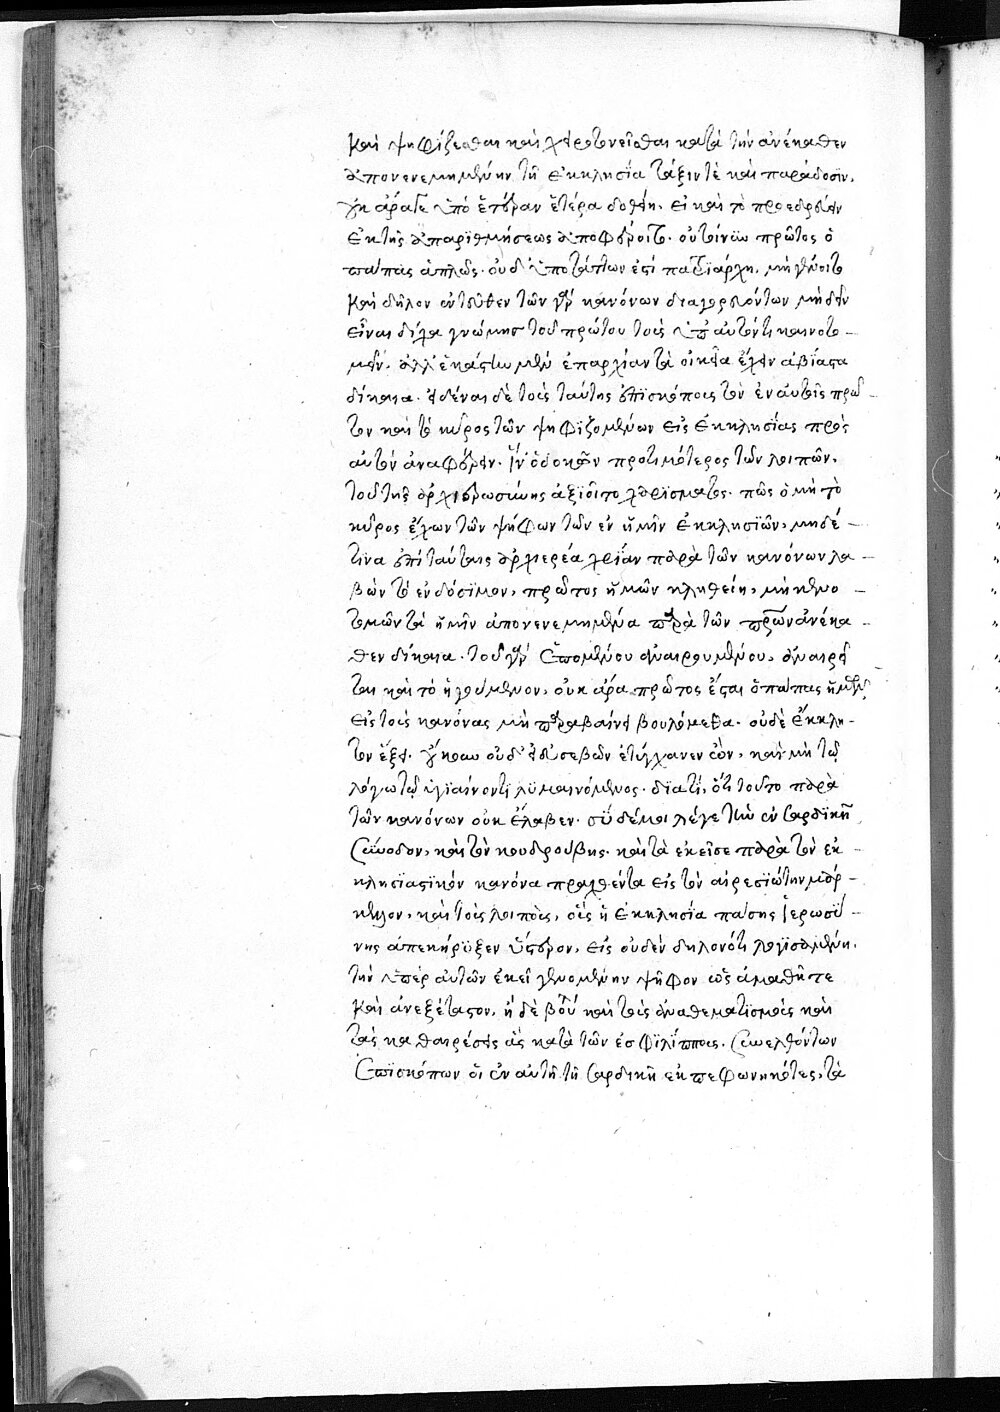 καὶ ψηφίζεσθαι καὶ χειροτονεῖσθαι κατὰ τὴν ἀνέκαθεν
ἀπονενεμημένην τῇ ἐκκλησία τάξιν τὲ καὶ παράδοσιν.
ὑπὸ ἑτέραν ἑτέρα δοθῇη. εἰ καὶ τὸ προεδρεύειν
ἐκ τῆς ἀπαριθμήσεως ἀποφέροιτο. οὐ τίνων πρῶτος ὁ
πάπας ἁπλῶς. ὑποτάττων ἐτί πατριάρχη. μὴ γένοιτο
καὶ δῆλον ἐντεῦθεν τῶν γὰρ κανόνων διαγορευόντων μηδὲν
εἶναι δίχα γνώμης τοῦ πρώτου τοῖς ὑπ' αὐτὸν τι καινοτο-
μεῖν. ἀλλ' ἑκάστω μὲν ἐπαρχίαν τὰ οἰκεῖα ἔχειν ἀβίαστα
δίκαια. εἰδέναι δὲ τοὺς ταύτης ἐπισκόπους τὸν ἐν αὐτοῖς πρῶ-
τον καὶ τὸ κῦρος τῶν ψηφιζομένων εἰς ἐκκλησίας πρὸς
αὐτὸν ἀναφέρειν. ἵν' ὁ δοκῶν προτιμότερος τῶν λοιπῶν.
τοῦ τῆς ἀρχιερωσύνης ἀξιοῖτο χρίσματος. πῶς ὁ μὴ τὸ
κῦρος ἔχων τῶν ψήφων τῶν ἐν ἡμῖν ἐκκλησιῶν, μηδέ-
τινα ἐπὶ ταύταις ἀρχιερέα χρίειν παρὰ τῶν κανόνων λα-
βὼν τὸ ἐνδόσιμον, πρῶτος ἡμῶν κληθείη, μὴ καινο-
τομῶν τὰ ἡμῖν ἀπονενεμημένα παρὰ τῶν πατέρων ἀνέκα-
θεν δίκαια. τοῦ γὰρ ἑπομένου ἀναιρουμένου, ἀναιρεῖ-
ται καὶ τὸ ἡγούμενον, οὐκ ἄρα πρῶτος ἔσται ὁ πάπας ἡμῶν
εἰς τοὺς κανόνας μὴ παραβαίνειν βουλόμεθα. οὐδὲ ἔκκλη-
τον ἕξει. εὐσεβῶν ἐτύγχανεν ὢν, καὶ μὴ τῷ
λόγω τῷ ὑγιαίνοντι λυμαινόμενος. διατί, ὅτι τοῦτο παρὰ
τῶν κανόνων οὐκ ἔλαβεν. σὺ δέ μοι λέγε τὴν ἐν σαρδικῇ
σύνοδον, καὶ τὸν κουδρούβης. καὶ τὰ ἐκεῖσε παρὰ τὸν ἐκ-
κλησιαστικὸν κανόνα πραχθέντα εἰς τὸν αἱρεσιώτην μάρ-
κελλον, καὶ τοὺς λοιποὺς, οἷς ἡ ἐκκλησία πάσης ἱερωσύ-
νης ἀπεκήρυξεν ὕστερον, εἰς οὐδὲν δηλονότι λογισαμένη.
τὴν ὑπὲρ αὐτῶν ἐκεῖ γενομένην ψῆφον ὡς ἀμαθῆ τε
καὶ ἀνεξέταστον, ἡ δὲ βοᾷ καὶ τοὺς ἀναθεματισμοὺς καὶ
τὰς καθαιρέσεις ἃς κατὰ τῶν ἐς φιλίππους. συνελθόντων
ἐπισκόπων οἱ ἐν αὐτῇ τῇ σαρδικῇ ἐκπεφωνηκότες, τὰ